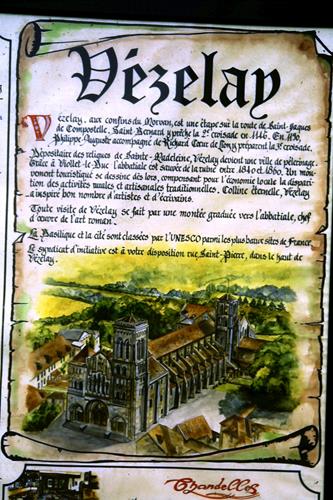 Vézelay
Vézelay, aux confins du Morvan, est une étape sur la route de Saint-Jaques
de Compostelle. Saint-Bernard y prêche la 2e croisade en 1146. En 1190,
Philippe-Auguste accompagné de Richard Cœur de Lion y préparent la 3e croisade.
Dépositaire des reliques de Sainte-Madeleine, Vézelay devient une ville de pélerinage.
Grâce à Viollet-le-Duc l'abbatiale est sauvée de la ruine entre 1840 et 1860. Un mou-
vement touristique se dessine dès lors, compensant pour l'économie locale la dispari-
tion des activités rurales et artisanales traditionnelles. Colline éternelle, Vézelay
a inspiré bon nombre d'artistes et d'écrivains.
Toute visite de Vézelay se fait par une montée graduée vers l'abbatiale, chef
d'œuvre de l'art roman.
La Basilique et la cité sont classées par l'UNESCO parmi les plus beaux sites de France.
Le syndicat d'initiative est à votre disposition rue Saint-Pierre, dans le haut de
Vézelay.